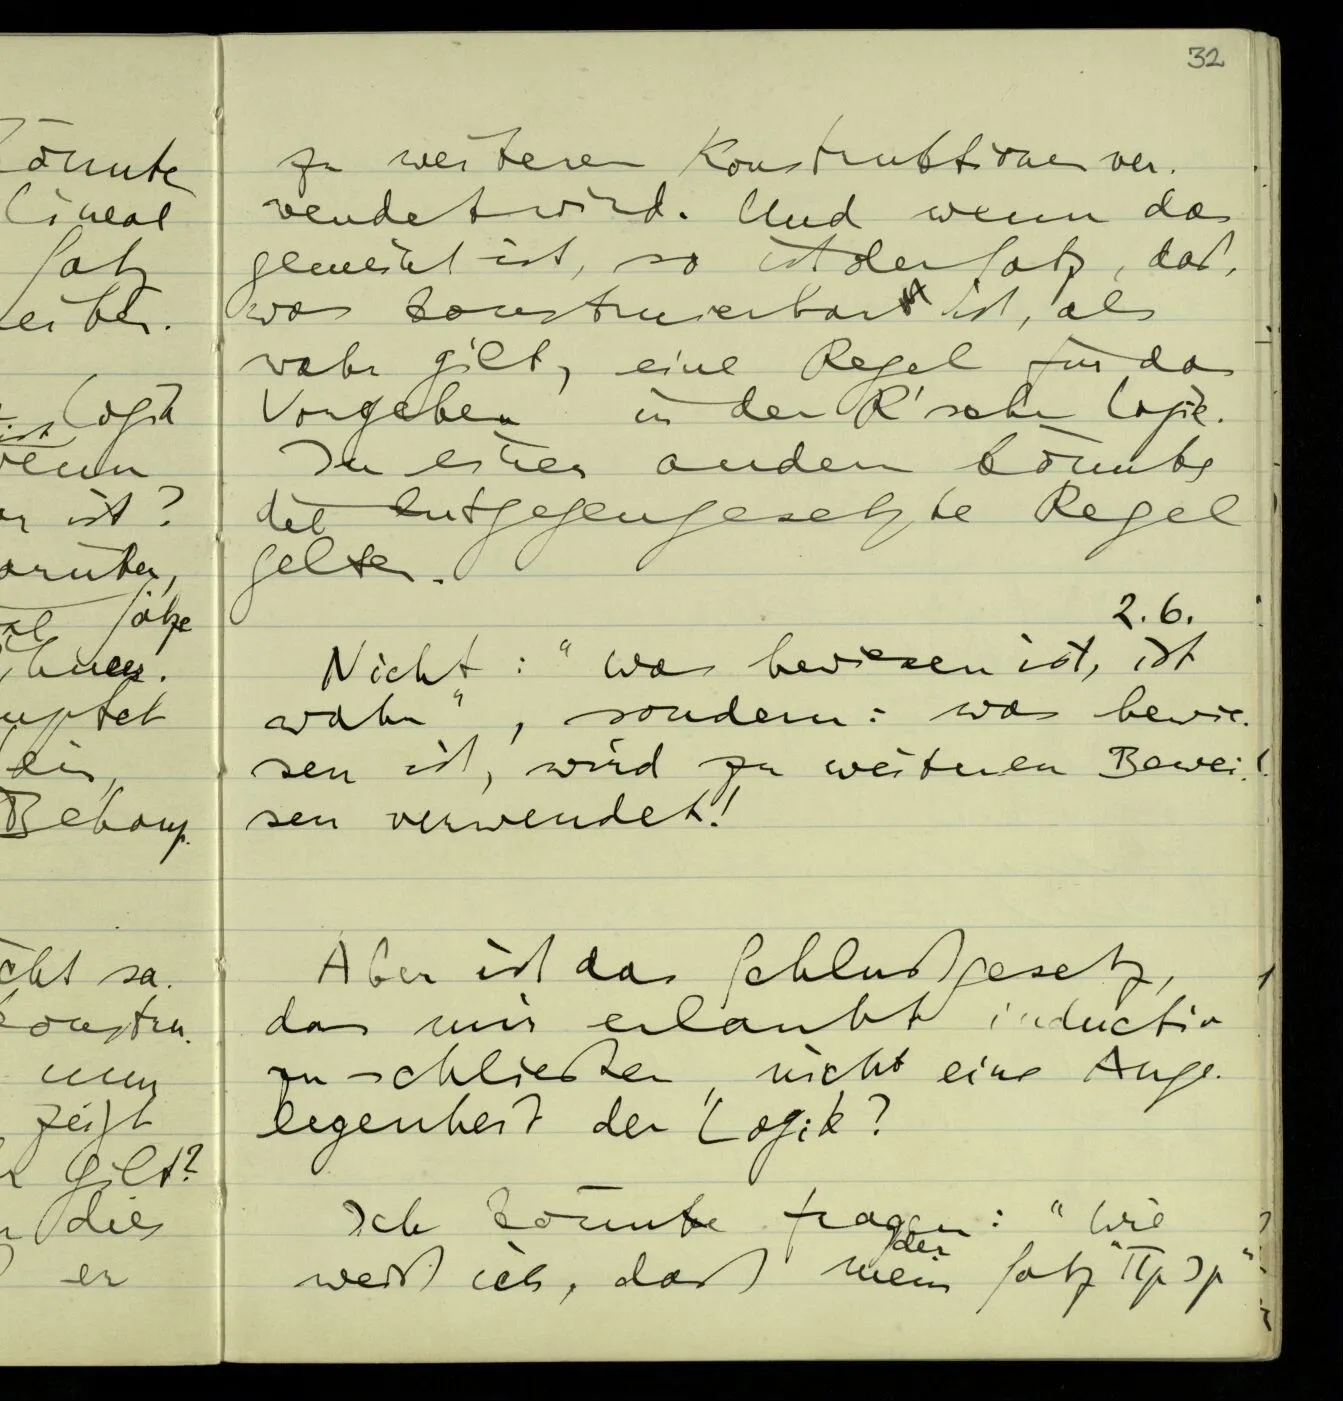 32
könnte
Lineal
Satz
Logik
ist
wenn
ist?
darüber,
Sätze
ein,
Behaup-
nicht sa-
konstru-
nun
zeigt
gilt?
dies
er
zu weiteren Konstruktionen ver-
wendet wird. Und wenn das
gemeint ist, so ist der Satz, daß,
was konstruierbar ist, als
wahr gilt, eine Regel für das
Vorgehen in der R'schen Logik.
In einer andern könnte
die entgegengesetzte Regel
gelten.
2.6.
Nicht: "was bewiesen ist, ist
wahr", sondern: was bewie-
sen ist, wird zu weiteren Bewei-
sen verwendet!
Aber ist das Schlußgesetz,
das mir erlaubt inductiv
zu schließen, nicht eine Ange-
legenheit der Logik?
Ich könnte fragen: "Wie
der
weiß ich, daß mein Satz "Πp⊃p"